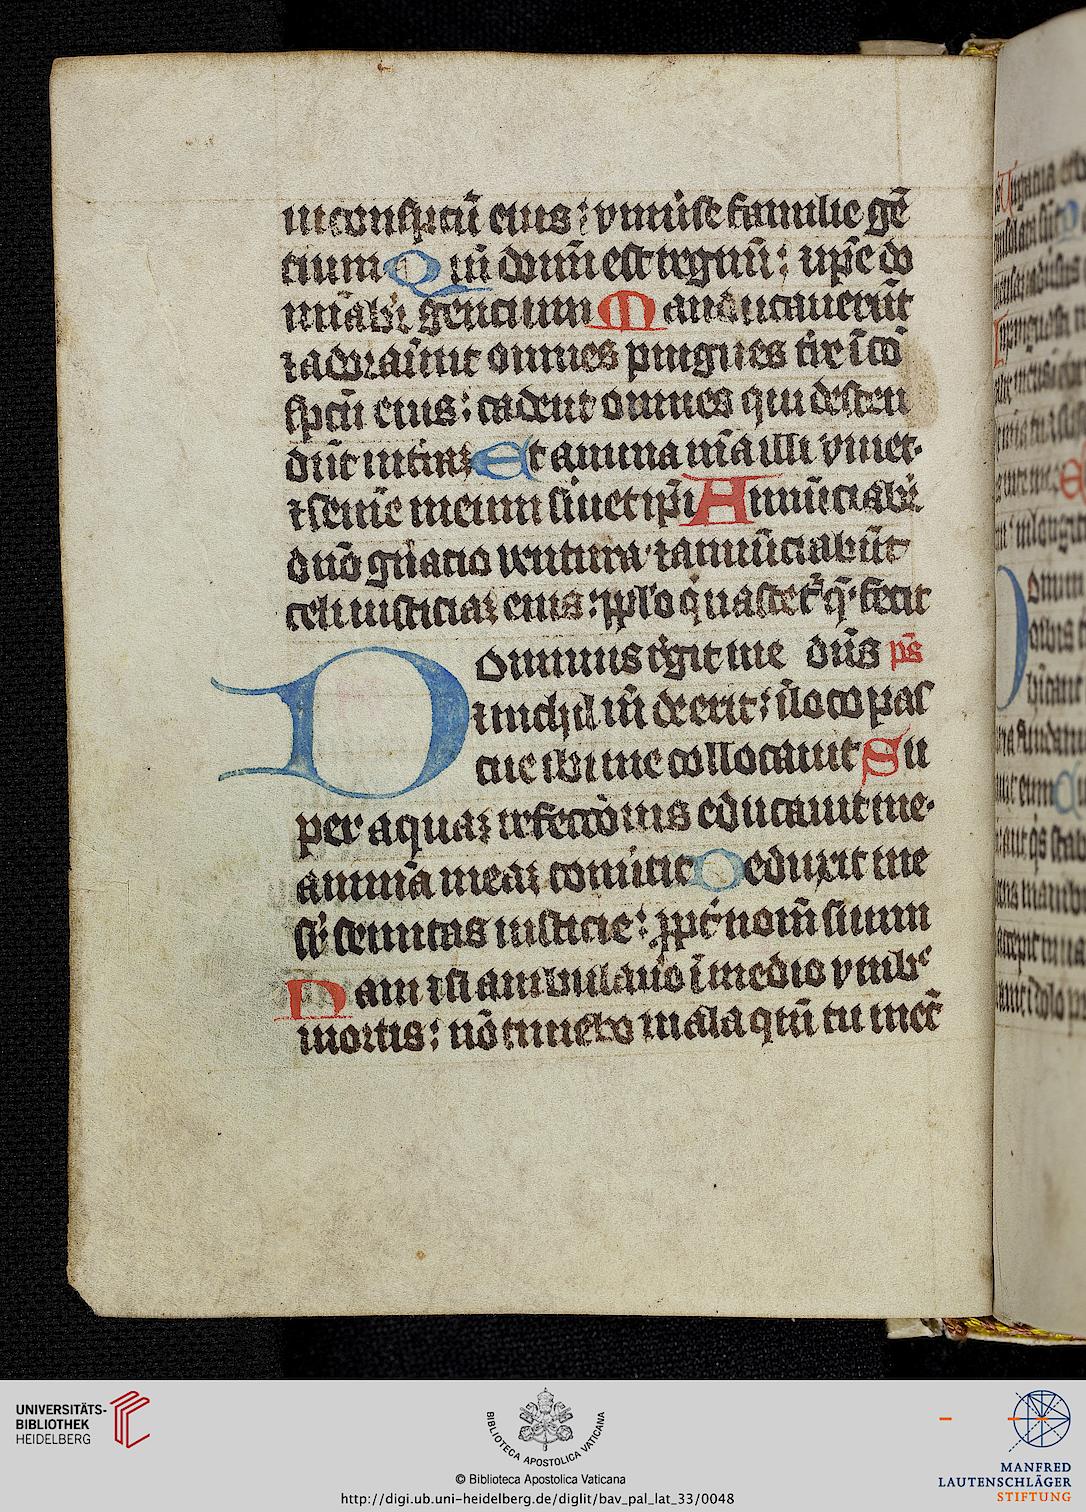 in conspc̄tū eius: vniũse familie gē
cium Quī domī est regnū: ⁊ ip̄e do
mīabit̛ gencium Manducauerūt
⁊ adoraūnt omnes pingues tr̄e ī cō
spc̄tū eius: cadent omnes qui descen
dūt in tr̄aꝫ Et anima mīa illi viuet·
⁊ semē meum ſuiet ip̄i Annūciabit̛
dn̄o gn̄acio ventura· ⁊ annūciabūt
celi iusticiaꝫ eius: pplo qui nascet̛ q̄· fecit
Dominus rēgit me dūs ps̄
⁊ nichil m̄ deerit: ī loco pas
cue ibi me collocauit Su
per aquaꝫ refectōnis educauit me·
animā meaꝫ conūtit Deduxit me
sr̄ semitas iusticie: ꝓpt̄ nom̄ suum
Nam ⁊ si ambulaūo ī medio vmbr̄
mortis: nō timebo mala qm̄ tu mec̄
UNIVERSITÄTS-
BIBLIOTHEK
HEIDELBERG
BIBLIOTECA APOSTOLICA VATICANA
© Biblioteca Apostolica Vaticana
http://digi.ub.uni-heidelberg.de/diglit/bav_pal_lat_33/0048
MANFRED
LAUTENSCHLÄGER
STIFTUNG